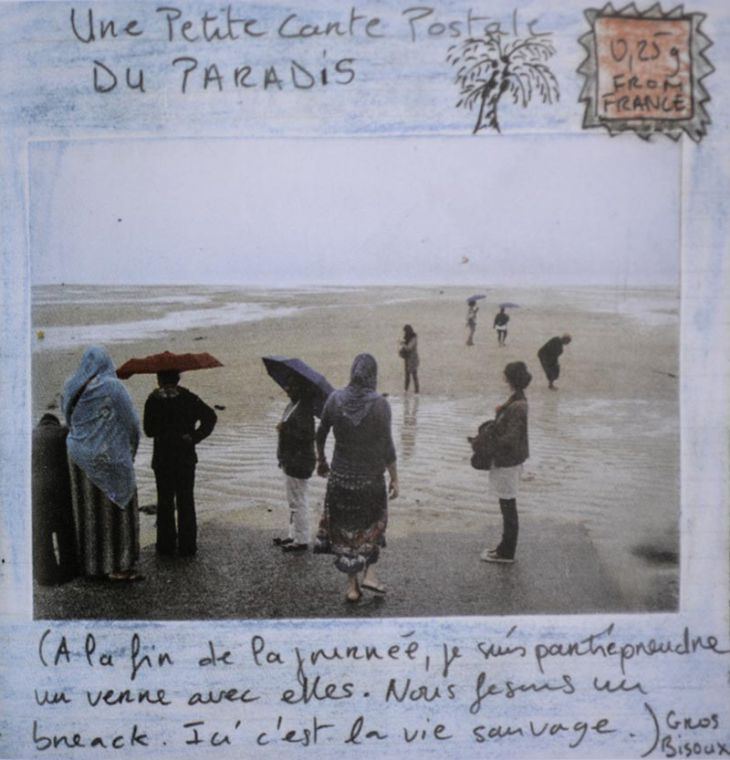 Une Petite Carte Postale
DU PARADIS
0,25g
FROM
FRANCE
(A la fin de la journnée, je suis partie prendre
un verre avec elles. Nous fesons un
breack. Ici c'est la vie sauvage.)
GROS
Bisoux